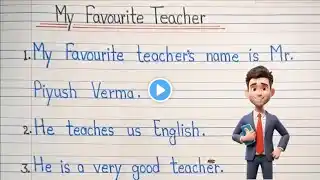 My Favourite Teacher
1. My Favourite teacher's name is Mr.
Piyush Verma.
2. He teaches us English.
3. He is a very good teacher.